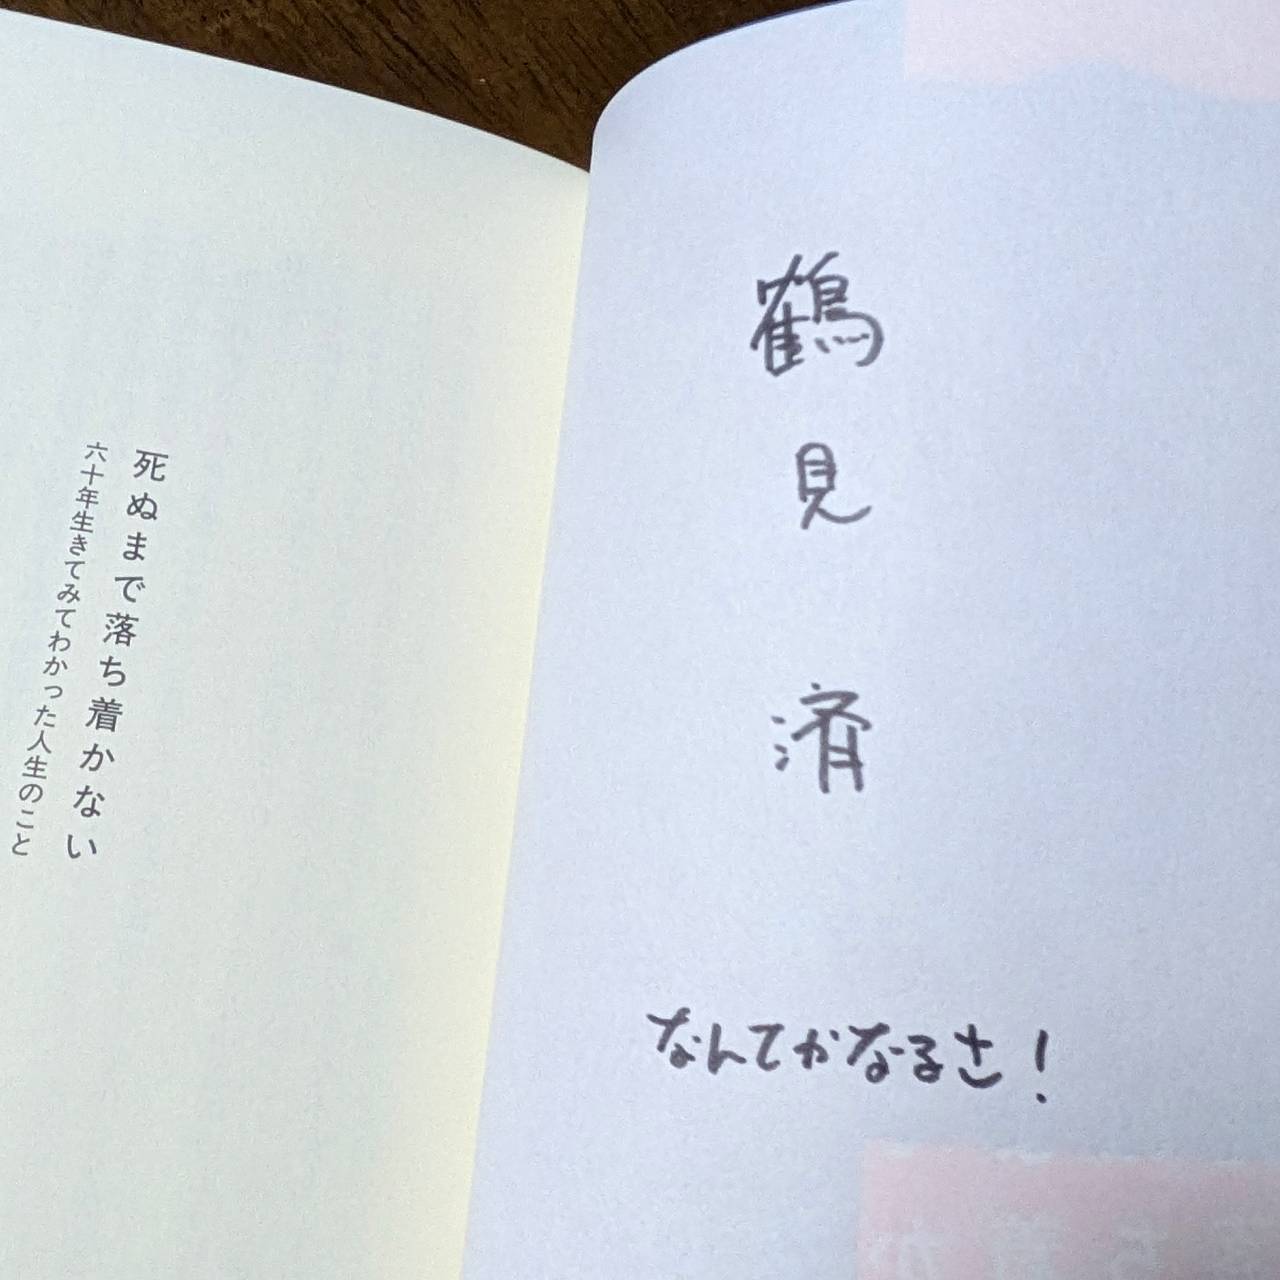 鶴見済
なんてかなるさ！
死ぬまで落ち着かない
六十年生きてみてわかった人生のこと